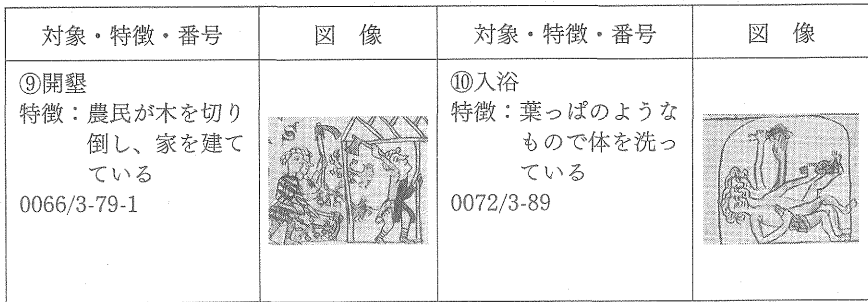 対象・特徴・番号
図 像
対象・特徴・番号
図 像
⑨開墾
特徴：農民が木を切り
倒し、家を建て
ている
0066/3-79-1
⑩入浴
特徴：葉っぱのような
もので体を洗っ
ている
0072/3-89